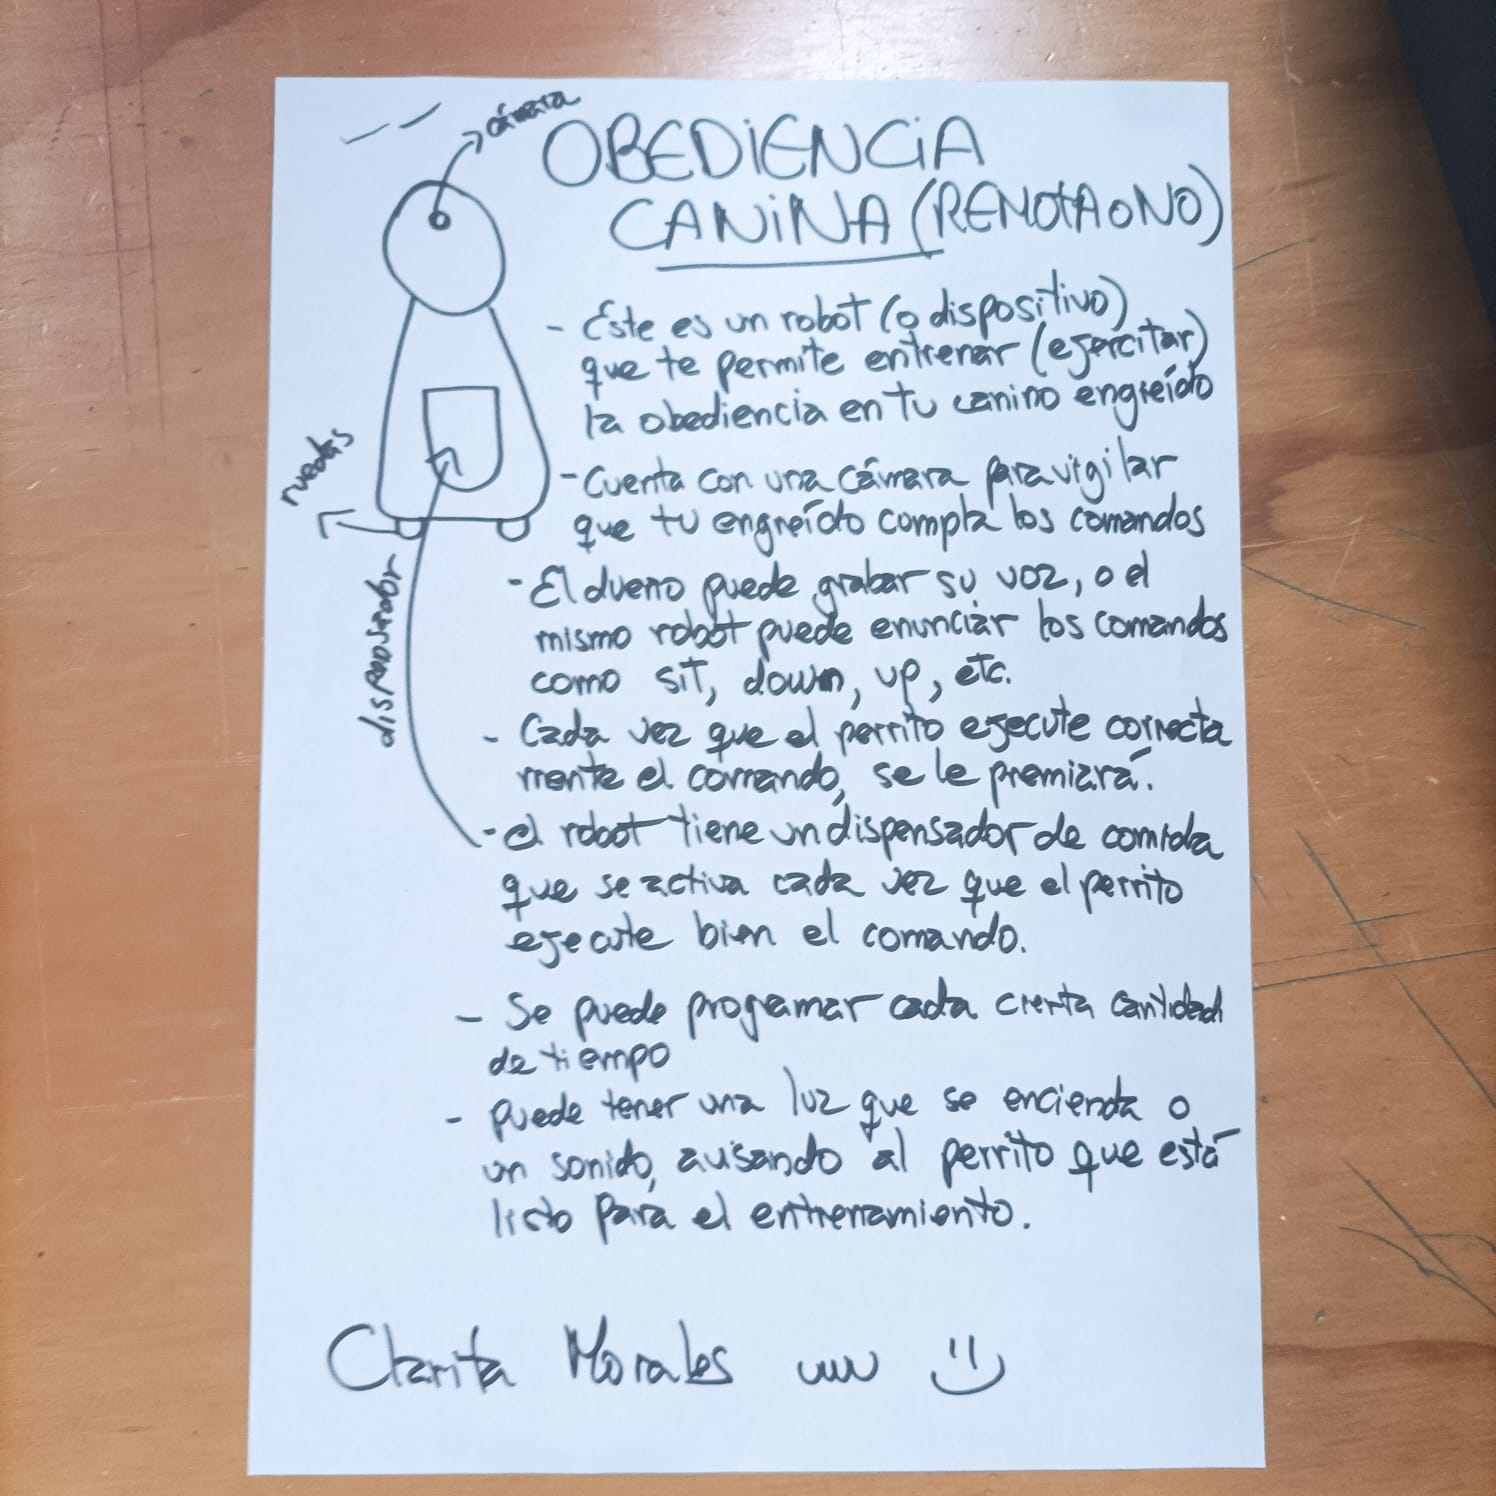 cámara
OBEDIENCIA
CANINA (REMOTA O NO)
- Este es un robot (o dispositivo)
que te permite entrenar (ejercitar)
la obediencia en tu canino engreído
ruedas
- Cuenta con una cámara para vigilar
que tu engreído compla los comandos
dispensador
- El dueno puede grabar su voz, o el
mismo robot puede enunciar los comandos
como sit, down, up, etc.
- Cada vez que el perrito ejecute correcta
mente el comando, se le premiará.
- el robot tiene un dispensador de comida
que se activa cada vez que el perrito
ejecute bien el comando.
- Se puede programar cada cierta cantidad
de tiempo
- puede tener una luz que se encienda o
un sonido, avisando al perrito que está
listo para el entrenamiento.
Clarita Morales